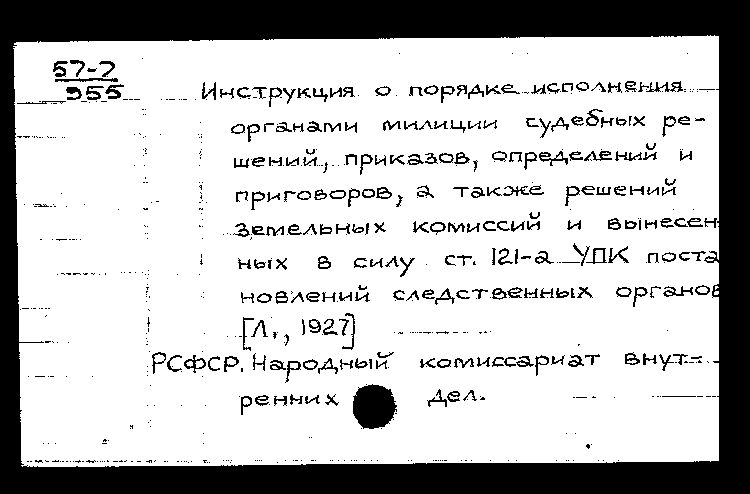 57-7
955
Инструкция о порядке исполнения
органами милиции судебных ре-
шений, приказов, определений и
приговоров, а также решений
земельных комиссий и вынесен
ных в силу ст. 121-а УПК поста
новлений следственных органов
[Л., 1927]
РСФСР. Народный комиссариат внут-
ренних дел.